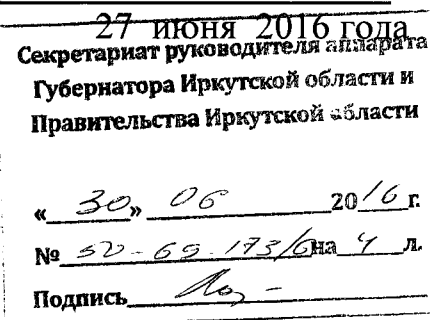 27 июня 2016 года
Секретариат руководителя аппарата
Губернатора Иркутской области и
Правительства Иркутской области
«30» 06 2016 г.
№ 50-69-173/6 на 4 л.
Подпись